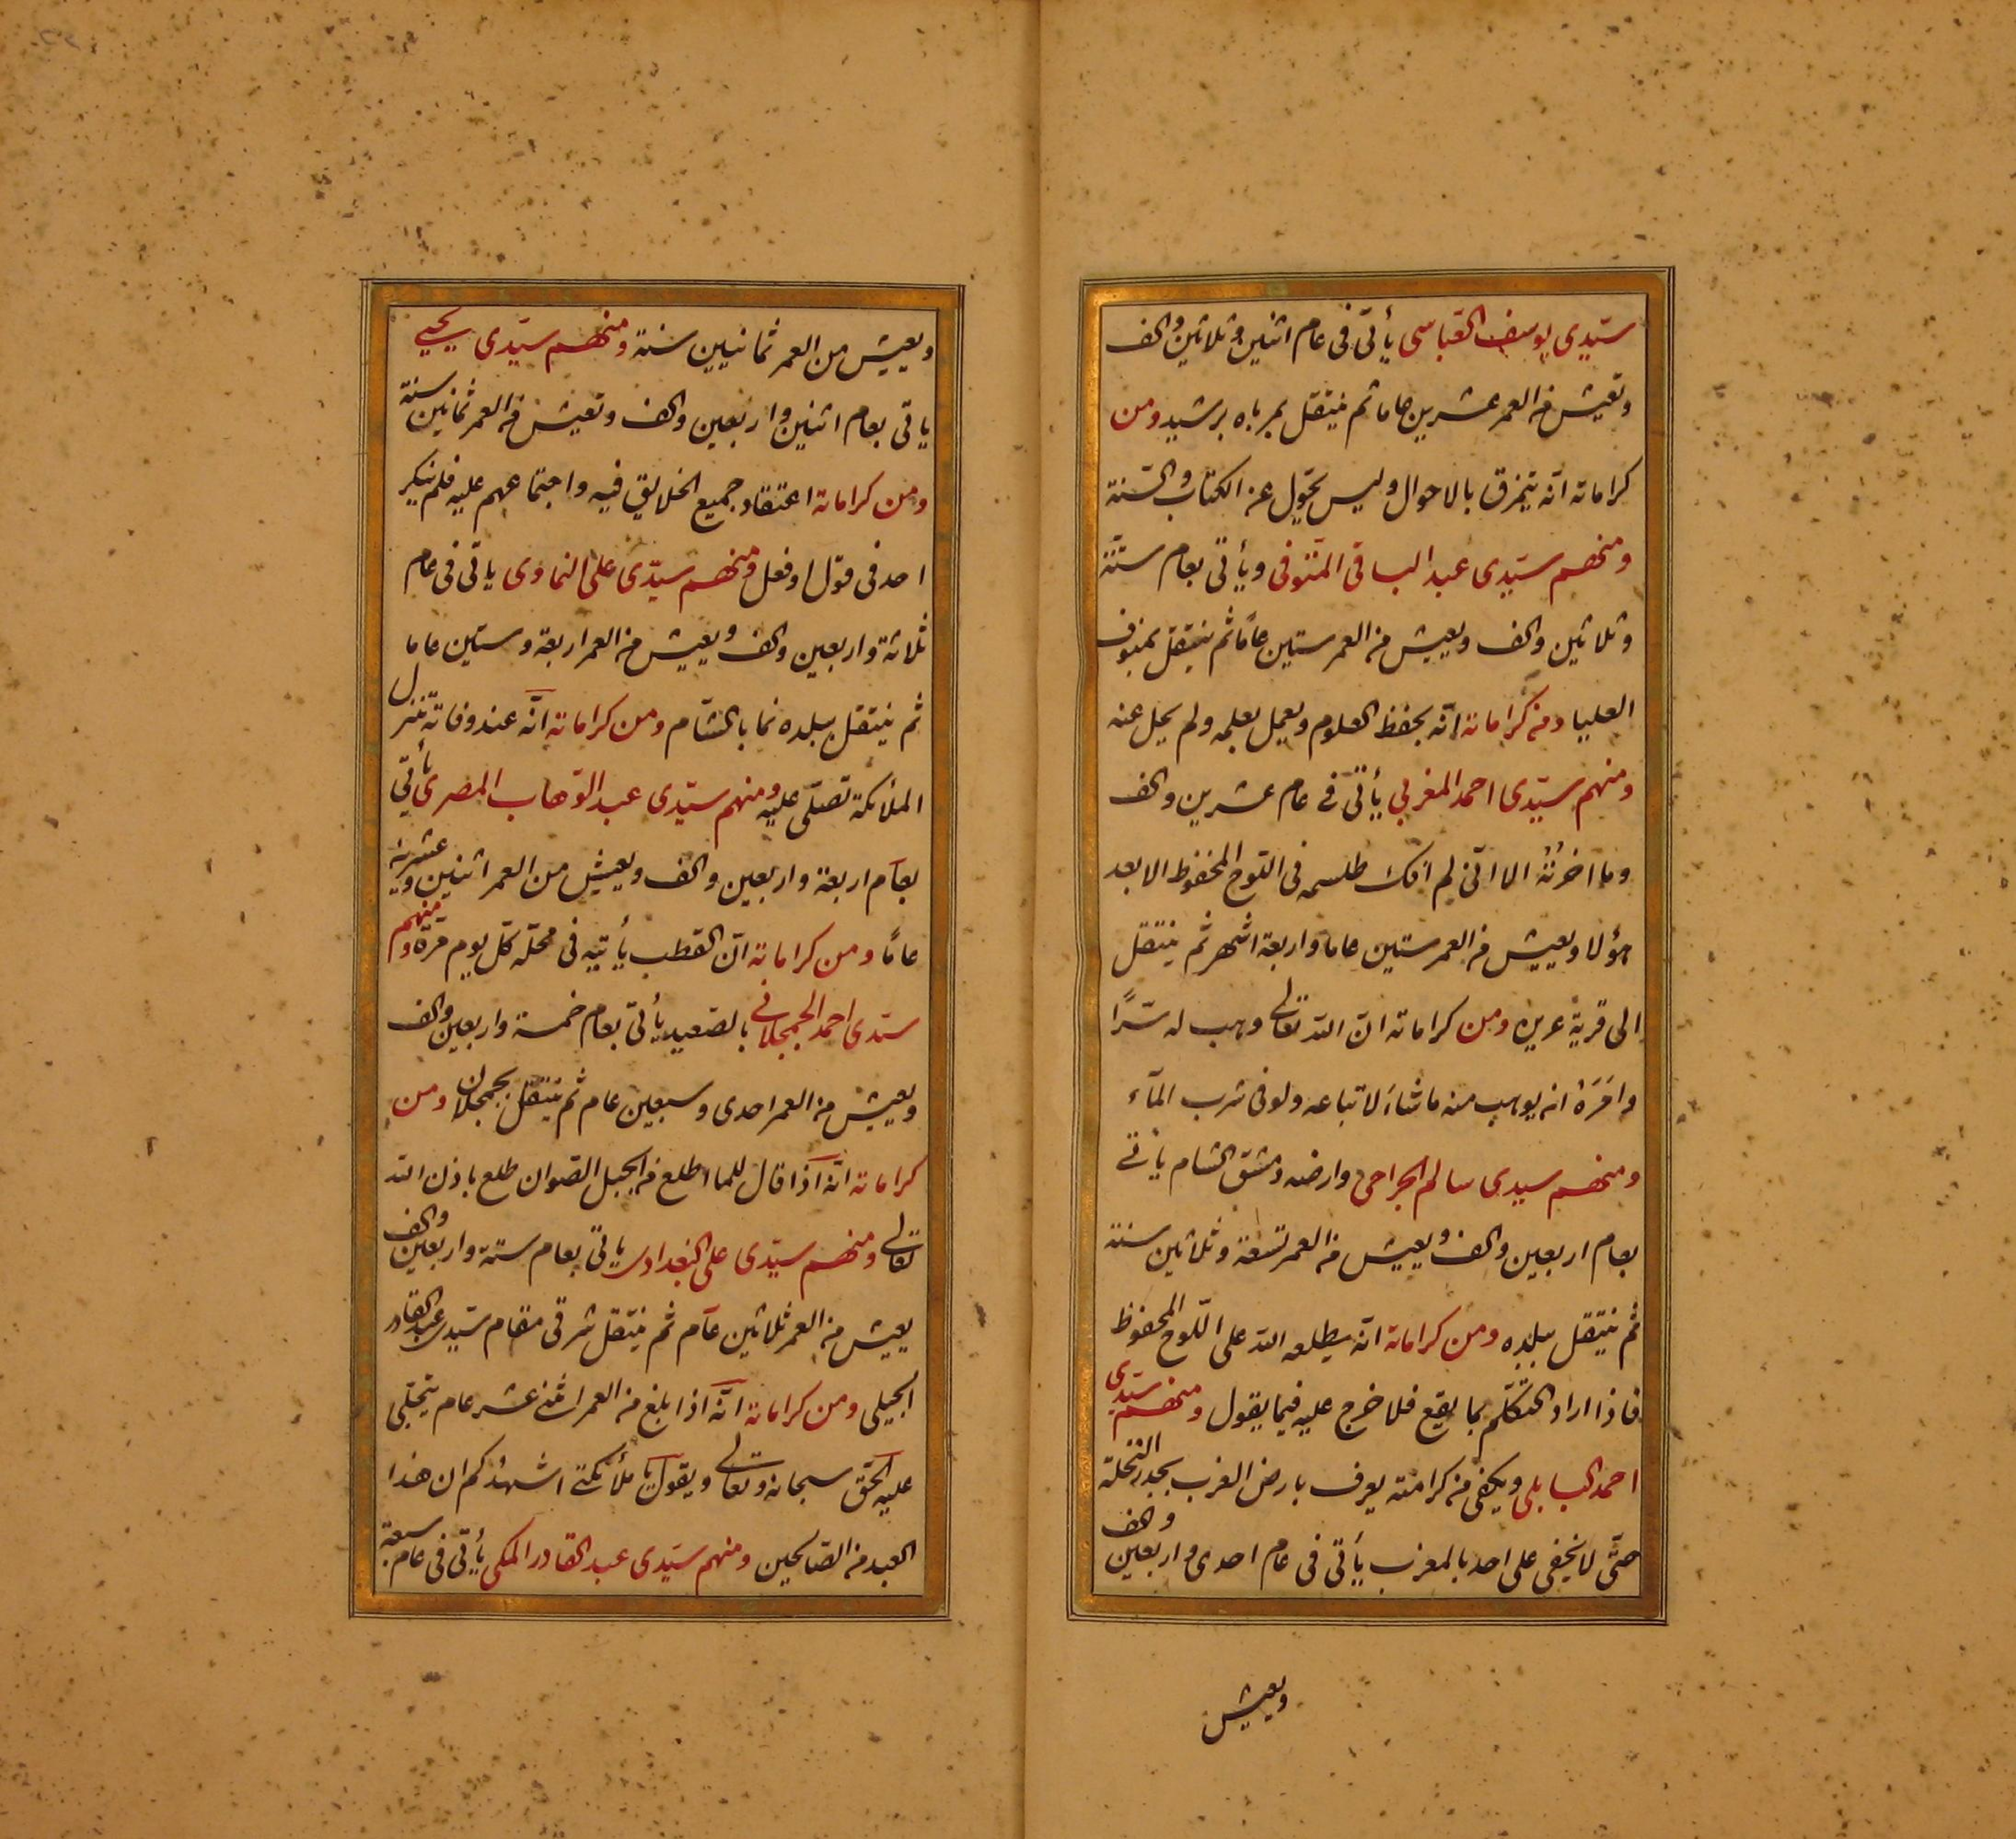 سيّدى يوسف العبّاسى يأتى فى عام اثنين وثلاثين والف
وتعيش من العمر عشرين عاما ثم ينتقل برباه برشيد ومن
كراماته انّه يتمزق بالاحوال وليس يحوّل عن الكتاب والسّنة
ومنهم سيّدى عبد الباقى المنّوفى ويأتى بعام ستّة
وثلاثين والف ويعيش من العمر ستين عامًا ثم ينتقل بمنوف
العليا ومن كراماته انّه يحفظ العلوم ويعمل بعلمه ولم يحل عنه
ومنهم سيّدى احمد المغربي يأتى فى عام عشرين والف
وما اخرتُهُ الا انّى لم افك طلسمه فى اللّوح المحفوظ الا بعد
هؤلا ويعيش من العمر ستين عاما واربعة اشهر ثم ينتقل
الى قرية عرين ومن كراماته انّ اللّه تعالى وهب له سّرًا
وامَرَهُ انه يوهب منه ما شاءَ لاتباعه ولو فى شرب المآء
ومنهم سيدى سالم الجراحى وارضه دمشق الشام يأتى
بعام اربعين والف ويعيش من العمر تسعة وثلاثين سنة
ثم ينتقل ببلده ومن كراماته انّه يطلعه اللّه على اللّوح المحفوظ
فاذا اراد التكلّم بما يقع فلا خرج عليه فيما يقول ومنهم سيّدى
احمد البابلى ويكفى من كرامته يعرف بارض الغرب بجدر النخلة
حتّى لا يخفى على احد بالمغرب يأتى فى عام احدى واربعين والف
ويعيش
ويعيش من العمر ثمانيين سنة ومنهم سيّدى يحيى
ياتى بعام اثنين واربعين والف وتعيش من العمر ثمانين سنة
ومن كراماته اعتقاد جميع الخلايق فيه واجتماعهم عليه فلم ينكر
احد فى قول او فعل ومنهم سيّدى على النماوى ياتى فى عام
ثلاثة واربعين والف ويعيش من العمر اربعة وستين عاما
ثم ينتقل ببلده نما بالشّام ومن كراماته انّه عند وفاته تنزل
الملأئكة تصلّى عليه ومنهم سيّدى عبد الوّهاب المصرى يأتى
بعام اربعة واربعين والف ويعيش من العمر اثنين وعشرين
عامًا ومن كراماته انّ القطب يأتيه فى محلّه كلّ يوم مرّة ومنهم
سيّدى احمد الجمجلانى بالصّعيد يأتى بعام خمسة واربعين والف
ويعيش من العمر احدى وسبعين عام ثم ينتقل بجمجلان ومن
كراماته انّه اذا قال للما اطلع من الجبل الصّوان طلع باذن اللّه
تعالى ومنهم سيّدى على البغدادى ياتى بعام ستة واربعين والف
يعيش من العمر ثلاثين عام ثم ينتقل شرقى مقام سيّدى عبد القادر
الجيلى ومن كراماته انّه اذا بلغ من العمر اثنى عشر عام يتجلّى
عليه الحّق سبحانه وتعالى ويقول يا ملأئكتى اشهدكم ان هذا
العبد من الصّالحين ومنهم سيّدى عبد القادر المكى يأتى فى عام سبعة